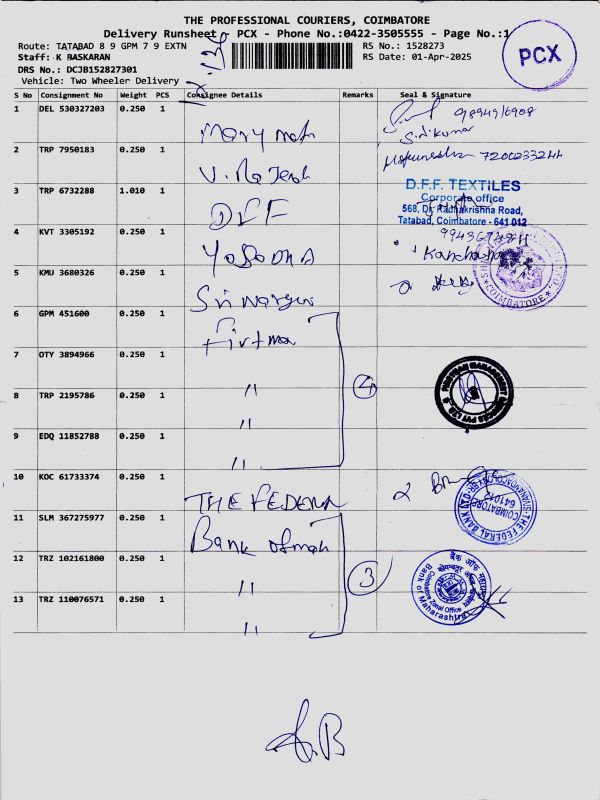 THE PROFESSIONAL COURIERS, COIMBATORE
Delivery Runsheet - PCX - Phone No.:0422-3505555 - Page No.:1
PCX
Route: TATABAD 8 9 GPM 7 9 EXTN
RS No.: 1528273
Staff: K BASKARAN
RS Date: 01-Apr-2025
DRS No.: DCJB152827301
Vehicle: Two Wheeler Delivery
S No Consignment No Weight PCS Consignee Details Remarks Seal & Signature
1 DEL 530327203 0.250 1
9894916908
Sasikumar
2 TRP 7950183 0.250 1 V. Rajesh
7200233244
3 TRP 6732288 1.010 1 DFF
D.F.F. TEXTILES
Corporate office
568, Dr. Radhakrishna Road,
Tatabad, Coimbatore - 641 012
4 KVT 3305192 0.250 1 Yasodha
COIMBATORE
5 KMU 3680326 0.250 1
6 GPM 451600 0.250 1 Firstman
7 OTY 3894966 0.250 1 "
4
8 TRP 2195786 0.250 1 "
9 EDQ 11852788 0.250 1 "
10 KOC 61733374 0.250 1 THE FEDERAL
THE FEDERAL BANK LTD
COIMBATORE
641012
11 SLM 367275977 0.250 1 Bank of mah
12 TRZ 102161800 0.250 1 "
3
बैंक ऑफ महाराष्ट्र
Coimbatore Zonal Office
Bank of Maharashtra
13 TRZ 110076571 0.250 1 "